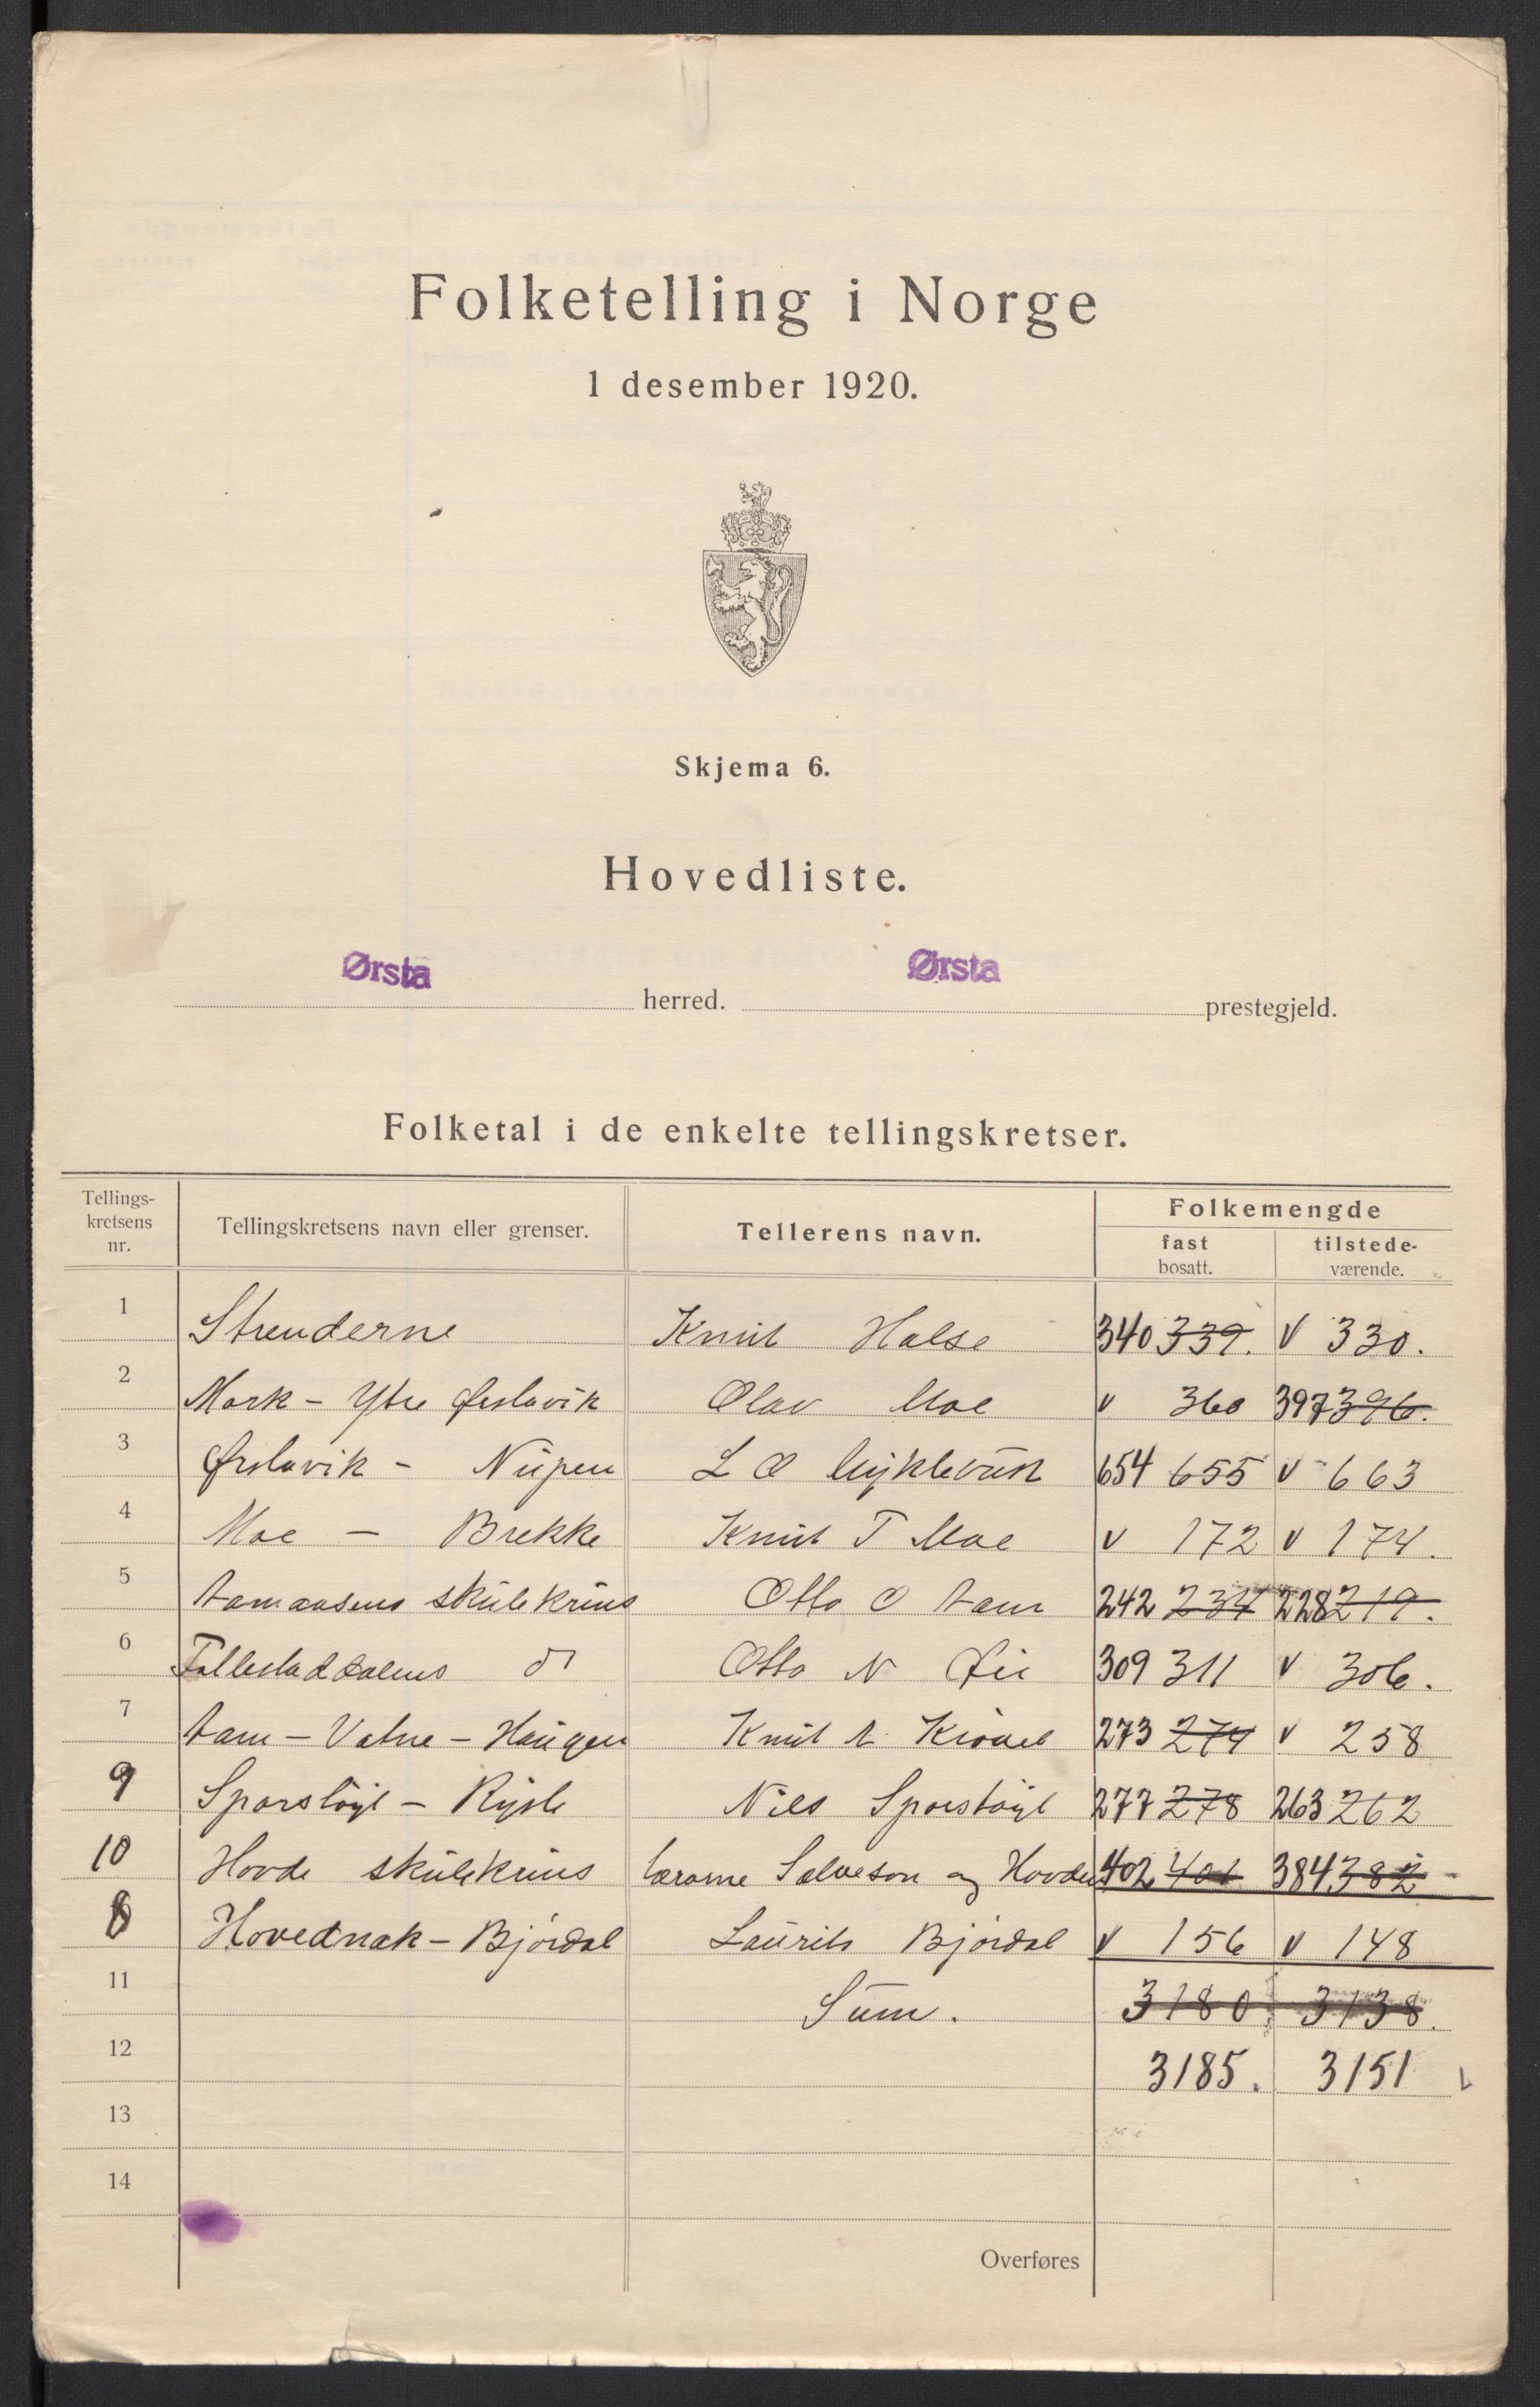 Folketelling i Norge
1 desember 1920.
Skjema 6.
Hovedliste.
Ørsta herred. Ørsta prestegjeld.
Folketal i de enkelte tellingskretser.
Tellings-kretsens nr. Tellingskretsens navn eller grenser. Tellerens navn. Folkemengde
fast bosatt. tilstede-værende.
1 Strenderne Knut Halse 340 339. v 330.
2 Mork - Ytre Ørstavik Olav Moe v 360 397 396.
3 Ørstavik - Nupen L O Myklebust 654 655 v 663
4 Moe - Brekke Knut T Moe v 172 v 174.
5 Aamaasens skulekrins Otto O Aam 242 234 228 219.
6 Follestaddalens do Otto N Øie 309 311 v 306.
7 Aam - Vatne - Haugen Knut A. 273 274 v 258
9 Sporstøyl - Rysle Nils Sporstøyl 277 278 263 262
10 Hovde skulekrins lærarne Salveson og Hovden 402 401 384 382
8 Hovednak - Bjørdal Laurits Bjørdal v 156 v 148
11 Sum. 3180. 3138.
12 3185. 3151
13
14
Overføres